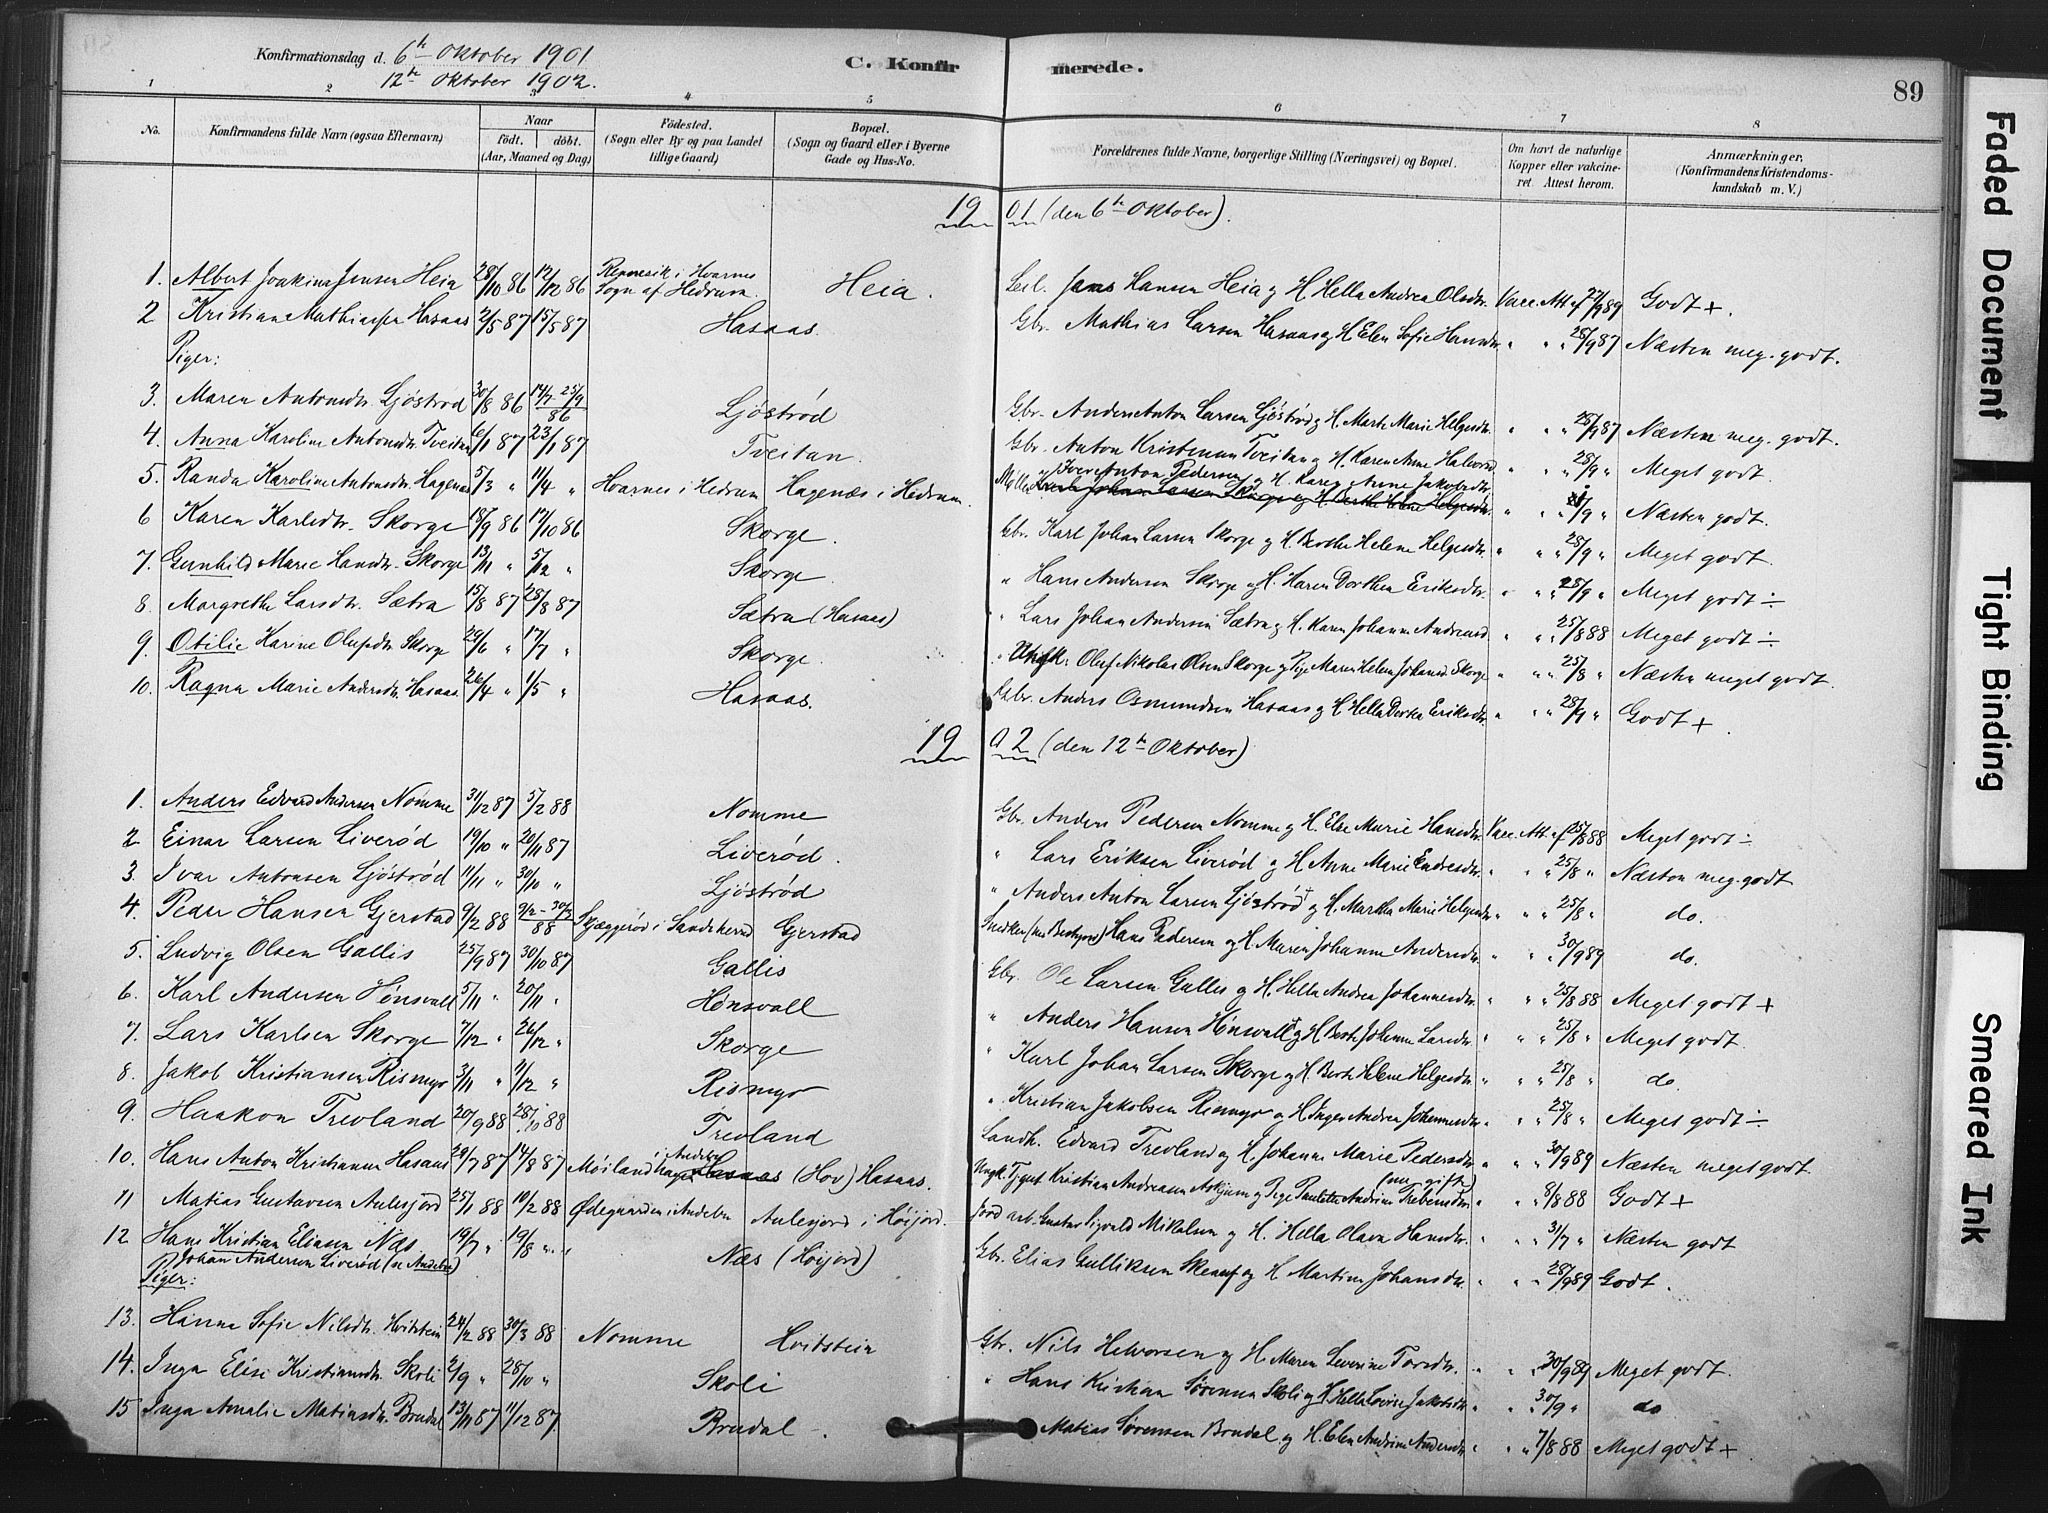 Konfirmationsdag d. 6th Oktober 1901
12te Oktober 1902.
C. Konfirmerede.
89
1 2 3 4 5 6 7 8
No. Konfirmandens fulde Navn (ogsaa Efternavn) Naar født. døbt. (Aar, Maaned og Dag) Fødested. (Sogn eller By og paa Landet tillige Gaard) Bopæl. (Sogn og Gaard eller i Byerne Gade og Hus-No. Forældrenes fulde Navne, borgerlige Stilling (Næringsvei) og Bopæl. Om havt de naturlige Kopper eller vakcineret Attest herom. Anmærkninger. (Konfirmandens Kristendomskundskab m. V.)
1901 (den 6th Oktober).
1. Albert Joakim Jensen Heia 28/10 86 12/12 86 i Hvarnes Sogn af Hedrum. Heia. Jens Hansen Heia og H. Hella Andrea Olsdtr. Vacc. Att. af 27/9 89 Godt +.
2 Kristian Mathiassen Hasaas 2/5 87 15/5 87 Hasaas. Gbr. Mathias Larsen Hasaas og H. Elen Sofie Hansdtr. " " 28/9 87 Næsten meg. godt.
Piger:
3. Maren Antonsdtr. Ljøstrød 30/8 86 14/7 - 25/9 86 Ljøstrød Gbr. Anders Anton Larsen Ljøstrød og H. Marte Marie Helgesdtr. " " 28/9 87 Næsten meg. godt.
4. Anna Karoline Antonsdtr. Tveitan 6/1 87 23/1 87 Tveitan. Gbr. Anton Kristensen Tveitan og H. Karen Anne Halvorsd. " " 28/9 " Meget godt.
5. Randa Karoline Antonsdtr. Hagenæs 5/3 " 11/4 " Hvarnes i Hedrum Hagenæs i Hedrum. Iver Anton Pedersen og H. Karen Anne Jakobsdtr. " " /9 " Næsten godt.
6 Karen Karlsdtr. Skorge 18/9 86 17/10 86 Skorge. Gbr. Karl Johan Larsen Skorge og H. Berthe Helene Helgesdtr. " " 28/9 " Meget godt.
7. Gunhild Marie Hansdtr. Skorge 13/11 " 5/12 " Skorge. " Hans Andersen Skorge og H. Karen Dorthea Eriksdtr. " " 28/9 " Meget godt ÷
8. Margrethe Larsdtr. Sætra 15/8 87 28/8 87 Sætra (Hasaas) " Lars Johan Andersen Sætra og H. Karen Johanne Andreasd. " " 25/8 88 Meget godt ÷
9. Otilie Karine Olufsdtr. Skorge 29/6 " 17/7 " Skorge. " Ungk. Oluf Nikolai Olsen Skorge og Pige Maren Helene Johansd. Skorge " " 25/8 " Næsten meget godt.
10. Ragna Marie Andersdtr. Hasaas 26/4 " 1/5 " Hasaas. Gbr. Anders Osmundsen Hasaas og H. Hella Dorthea Eriksdtr. " " 28/9 " Godt +
1902 (den 12th Oktober)
1. Anders Edvard Andersen Nomme 31/12 87 5/2 88 Nomme Gbr. Anders Pedersen Nomme og H. Else Marie Hansdtr. Vacc. Att. af 25/8 88 Meget godt ÷
2 Einar Larsen Liverød 19/10 " 20/11 87 Liverød. " Lars Eriksen Liverød og H. Anne Marie Endresdtr. " " 25/8 " Næsten meg. godt
3 Ivar Antonsen Ljøstrød 11/11 " 30/10 " Ljøstrød " Anders Anton Larsen Ljøstrød og H. Martha Marie Helgesdtr. " " 25/8 " do.
4. Peder Hansen Gjerstad 9/2 88 9/2 - 30/3 88 Skjæggerød i Sandeherred Gjerstad Snedker (nu Bestyrer) Hans Pedersen og H. Maren Johanne Andersdtr. " " 30/9 89 do.
5. Ludvig Olsen Gallis 25/9 87 30/10 87 Gallis Gbr. Ole Larsen Gallis og H. Hella Andrea Johannesdtr. " " 25/8 88 Meget godt +
6. Karl Andersen Hønsvall 5/11 " 20/11 " Hønsvall " Anders Hansen Hønsvall og H. Berte Johanne Larsdtr. " " 25/8 " Meget godt.
7. Lars Karlsen Skorge 7/12 " 26/12 " Skorge " Karl Johan Larsen Skorge og H. Berte Helene Helgesdtr. " " 25/8 " do.
8. Jakob Kristiansen Rismyr 3/11 " /12 " Rismyr " Kristian Jakobsen Rismyr og H. Inger Andrea Johannesdtr. " " 25/8 " Meget godt ÷
9. Haakon Trevland 20/9 88 28/10 88 Trevland Landh. Edvard Trevland og H. Johanne Marie Pedersdtr. " " 30/9 89 Næsten meget godt
10. Hans Anton Kristiansen Hasaas 29/7 87 14/8 87 Møiland i Andebu (Hov) Hasaas. Ungk. Kristian Andreassen Askjum og Pige Andrine (nu gift) " " /8 88 Godt +
11 Matias Gustavsen Aulesjord 25/1 88 10/2 88 Ødegaarden i Andebu Aulesjord i Høijord. Jord arb. Gustav Sigvald Mikalsen og H. Hella Olava Hansdtr. " " 31/7 " Næsten godt
12 Hans Kristian Eliasen Næs 19/7 " 19/8 " Næs (Høijord) Gbr. Elias Gulliksen og H. Martine Johansdtr. " " 28/9 89 Godt.
Johan Andersen Liverød (se Andebu)
Piger:
13. Hanna Sofie Nilsdtr. Hvitstein 24/2 88 30/3 88 Nomme Hvitstein Gbr. Nils Halvorsen og H. Maren Severine Torsdtr. " " 30/9 89 Meget godt.
14. Inga Elise Kristiansdtr. Skoli 2/9 " 28/10 " Skoli " Hans Kristian Sørensen Skoli og H. Hella Lovise Jakobsdtr. " " 30/9 " do
15 Inga Amalie Matiasdtr. Brudal 13/11 87 11/12 87. Brudal. Matias Sørensen Brudal og H. Elen Andrine Andersdtr. " " 7/8 88 Meget godt +
Faded Document
Tight Binding
Smeared Ink